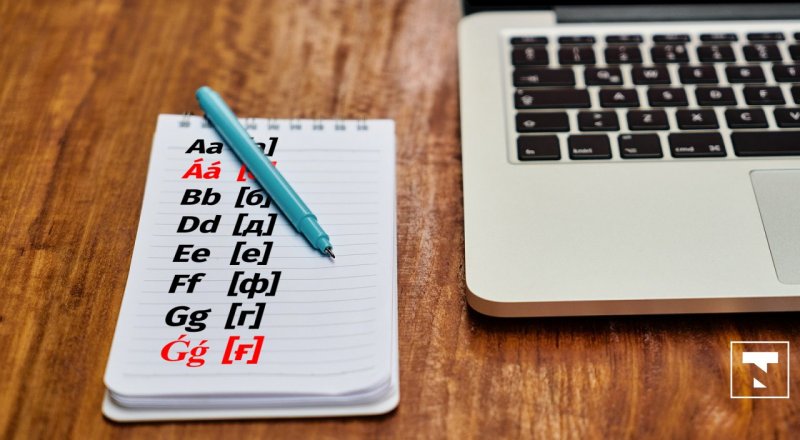 Aa
Áá
Bb [б]
Dd [д]
Ee [е]
Ff [ф]
Gg [г]
Ǵǵ [ғ]
cmd ⌘